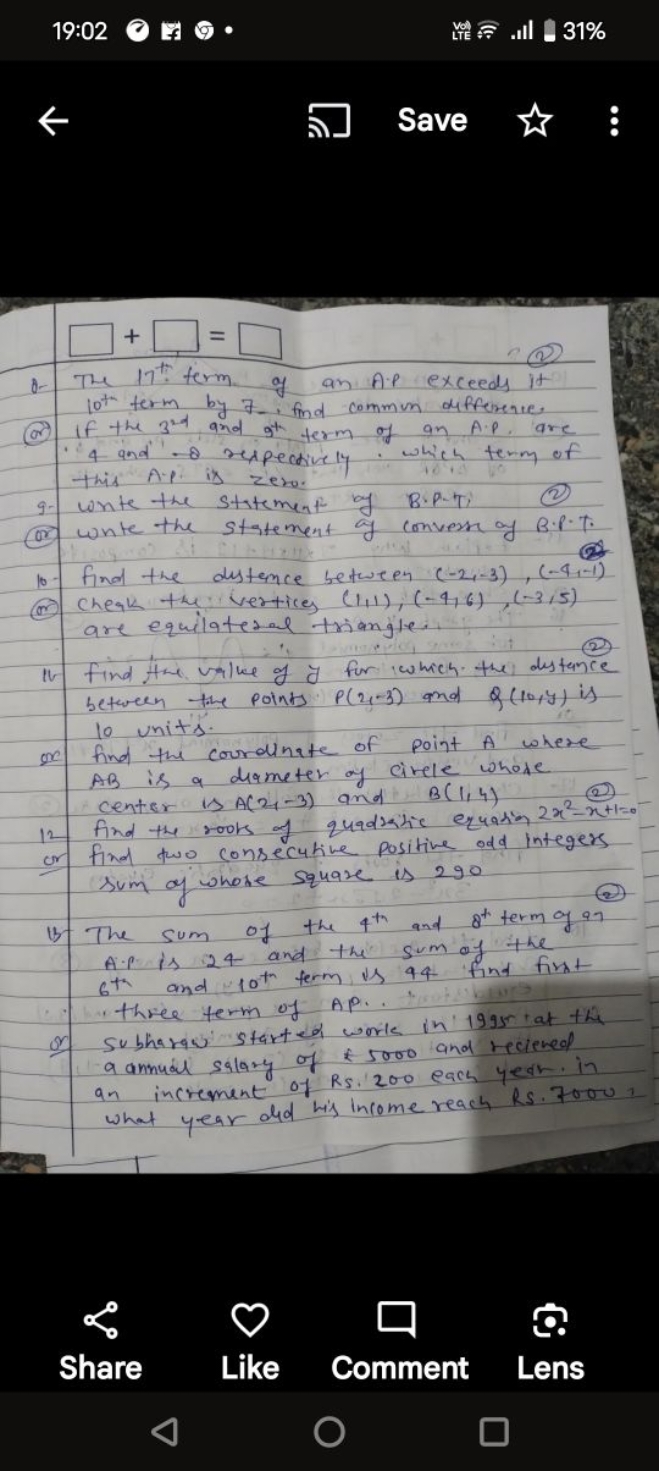 19:02 VoLTE 31%
Save
□ + □ = □
(2)
8- The 17th term of an A.P exceeds it
10th term by 7. find commun difference.
(or) If the 3rd and 9th term of an A.P. are
4 and -8 respectively. which term of
this A.P. is zero.
9- write the statement of B.P.T. (2)
(or) write the statement of converse of B.P.T.
10- find the distence between (-2,-3), (-4,-1) (2)
(or) cheak the vertices (1,1), (-4,6), (-3,5)
are equilateral triangle.
(2)
11- find the value of y for which the distance
between the points P(2,-3) and Q(10,y) is
10 units.
or find the coordinate of point A where
AB is a diameter of circle whose
center is A(2,-3) and B(1,4) (2)
12 find the roots of quadratic equation 2x²-x+1=0
or find two consecutive positive odd integers
sum of whose square is 290
(2)
13- The sum of the 4th and 8th term of an
A.P is 24 and the sum of the
6th and 10th term is 44 find first
three term of AP.
or Subharao started work in 1995 at the
a annual salary of ₹ 5000 and recieved
an increment of Rs. 200 each year. in
what year did his income reach Rs. 7000?
Share Like Comment Lens